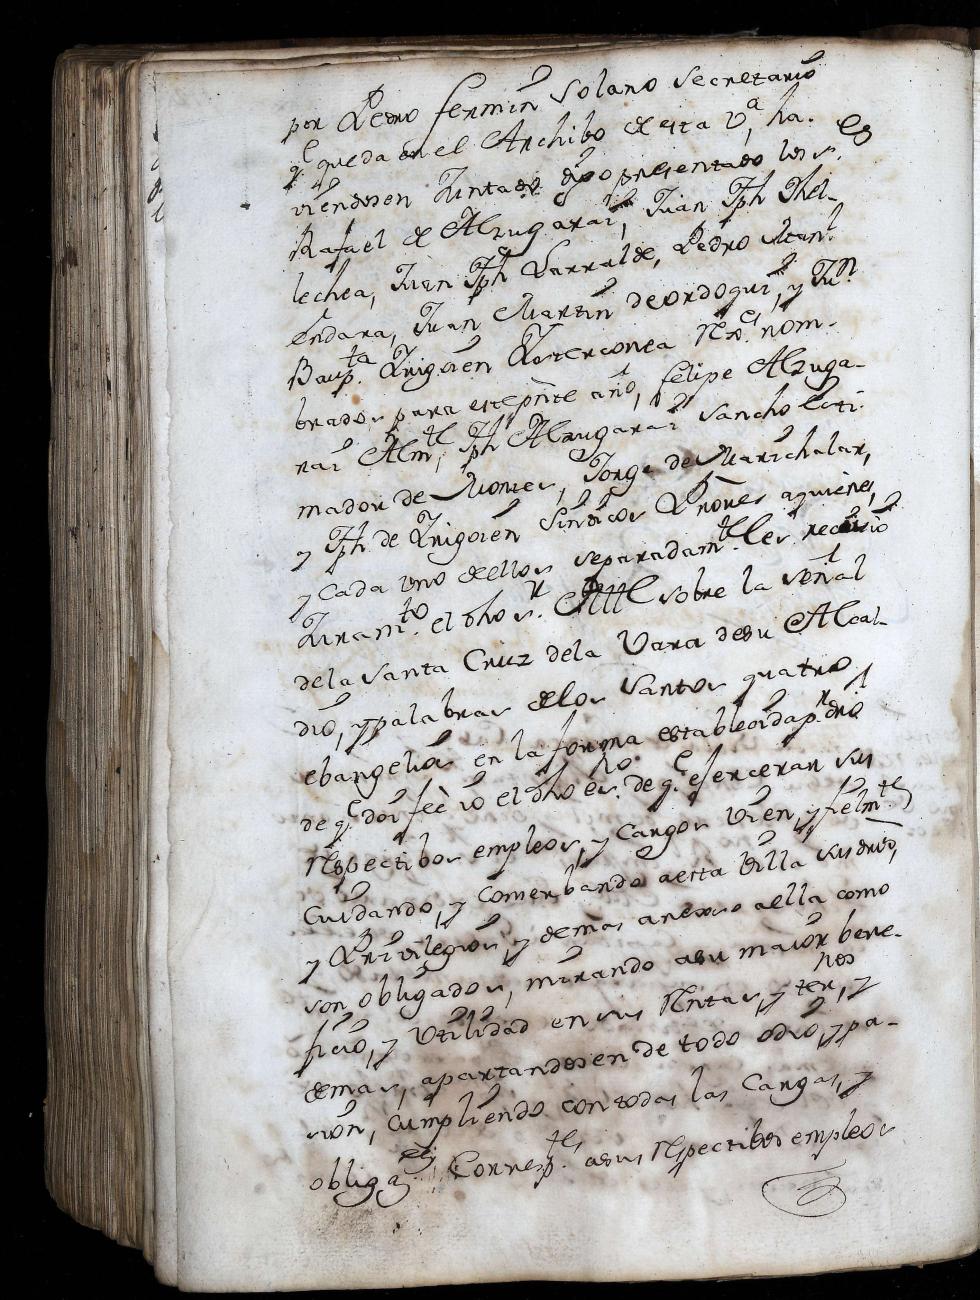 por Pedro fermin Solano Secretario
q.e queda en el Archibo de esta V.a, ha. es
viendosen Juntado y presentado los s.
Rafael de Alzugarai, Juan Jph Ihel-
lechea, Juan Jph Larralde, Pedro Man.l
Endara, Juan Martin de ordoqui, y Ju.n
Baup.ta Irigoien nom-
brados para este pnte año, felipe Alzuga-
rai Alm.te, Jph Alzugarai Sancho
mador de Montes, Jorge de Marichalar,
y Jph de Irigoien Sindicos Priores aquienes,
y Cada uno de ellos separadam.te les recivio
Juram.to el dho s.r Alcl sobre la señal
de la Santa Cruz dela Vara desu Alcal-
dio, y palabras de los Santos quatro
ebangelios en la forma establecida p.r dro
de q.e doi feè io el dho es.no de q.e ejerceran sus
respectibos empleos, y Cargos vien, y fielm.te
Cuidando, y conserbando aesta villa sus drios,
y Privilegios, y demas anexo aella como
son obligados, mirando asu maior bene-
ficio, y Utilidad en sus Rentas, y terr.nos, y
demas, apartandosen de todo odio, y pa-
sion, Cumpliendo contodas las Cargas, y
oblig.es Corresp.tes asus respectibos empleos